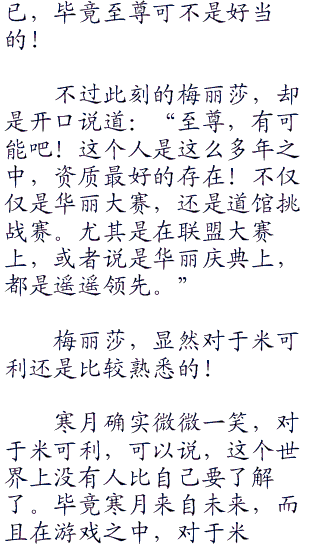 已，毕竟至尊可不是好当
的！
不过此刻的梅丽莎，却
是开口说道：“至尊，有可
能吧！这个人是这么多年之
中，资质最好的存在！不仅
仅是华丽大赛，还是道馆挑
战赛。尤其是在联盟大赛
上，或者说是华丽庆典上，
都是遥遥领先。”
梅丽莎，显然对于米可
利还是比较熟悉的！
寒月确实微微一笑，对
于米可利，可以说，这个世
界上没有人比自己要了解
了。毕竟寒月来自未来，而
且在游戏之中，对于米